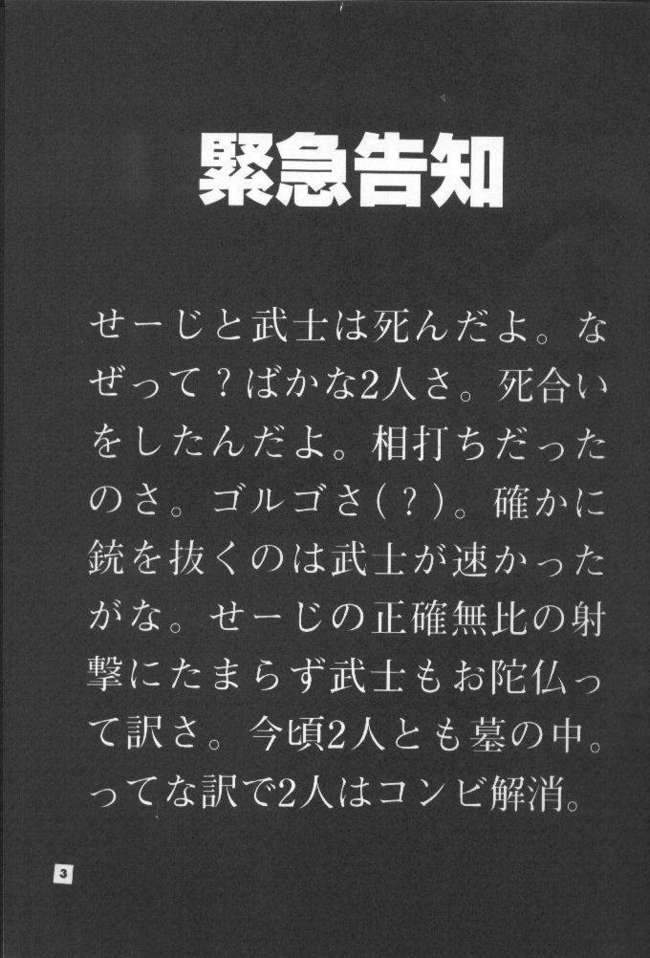 緊急告知
せーじと武士は死んだよ。な
ぜって？ばかな2人さ。死合い
をしたんだよ。相打ちだった
のさ。ゴルゴさ(？)。確かに
銃を抜くのは武士が速かった
がな。せーじの正確無比の射
撃にたまらず武士もお陀仏っ
て訳さ。今頃2人とも墓の中。
ってな訳で2人はコンビ解消。
3